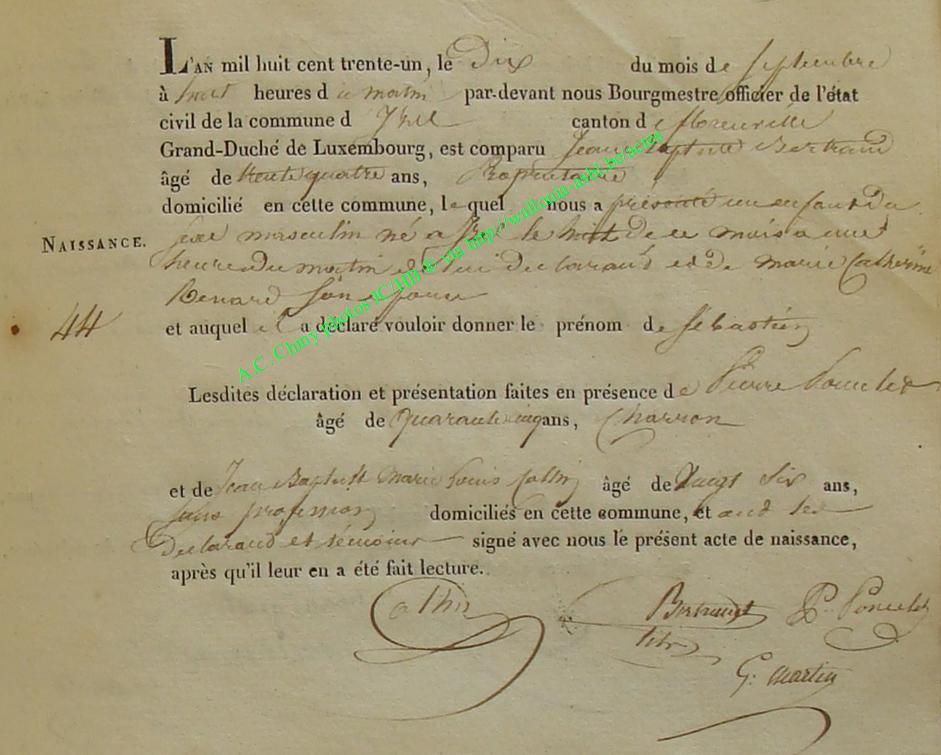 L'AN mil huit cent trente-un, le Dix du mois de Septembre
à huit heures d u matin par-devant nous Bourgmestre officier de l'état
civil de la commune d canton d e florenville
Grand-Duché de Luxembourg, est comparu Jean Baptiste Bertrand
âgé de trente quatre ans, Propriétaire
domicilié en cette commune, le quel nous a présenté un enfant du
NAISSANCE. sexe masculin né a le huit de ce mois a une
heure du matin de lui declarand et de marie Catherine
Renard Son
44 et auquel il a déclaré vouloir donner le prénom de Sébastien
A.C. Chiny photos IC/HB © via http://wallonia-asbl.be/actes
Lesdites déclaration et présentation faites en présence de Pierre Poncelet
âgé de quarante cinq ans, Charron
et de Jean Baptist Marie Louis âgé de Vingt Six ans,
sans profession domiciliés en cette commune, et ont les
Declarand et témoins signé avec nous le présent acte de naissance,
après qu'il leur en a été fait lecture.
Bertrand P. Poncelet
G. Martin